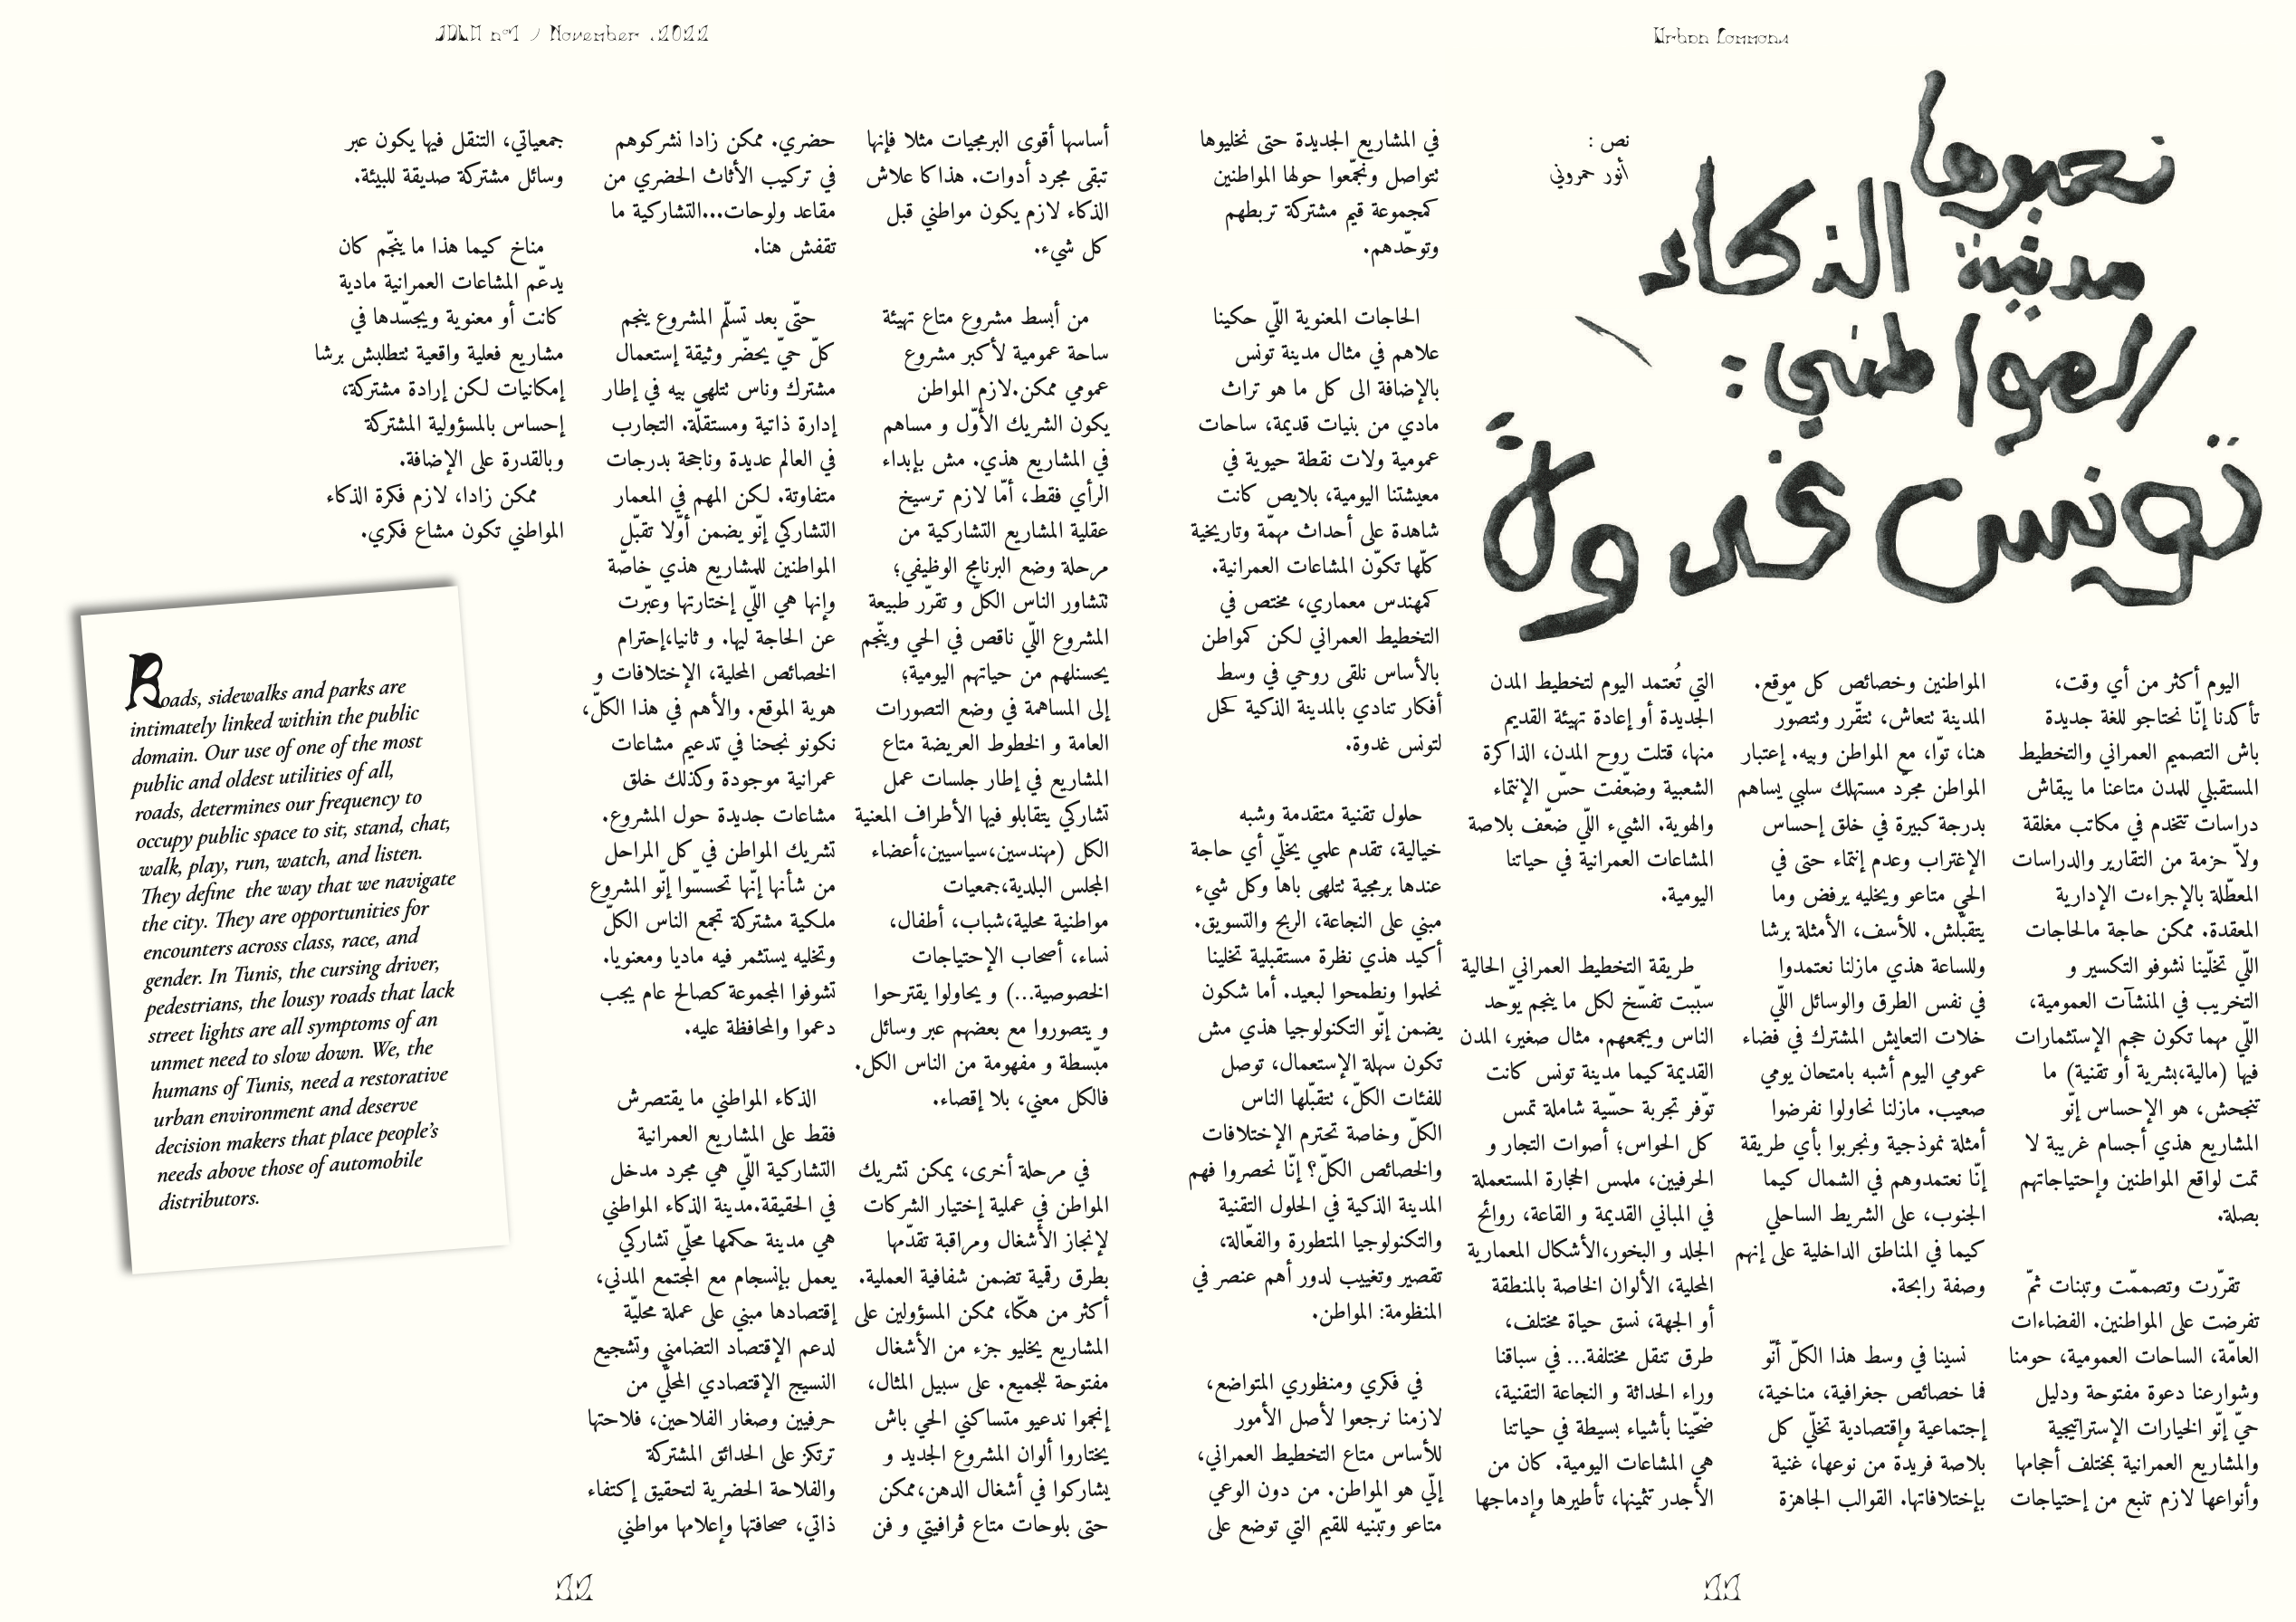 Urban Commons
نحبوها
مدينة الذكاء
المواطني:
تونس غدوة
نص :
أنور حمروني
اليوم أكثر من أي وقت،
تأكدنا إنّا نحتاجو للغة جديدة
باش التصميم العمراني والتخطيط
المستقبلي للمدن متاعنا ما يبقاش
دراسات تتخدم في مكاتب مغلقة
ولاّ حزمة من التقارير والدراسات
المعطّلة بالإجراءت الإدارية
المعقدة. ممكن حاجة مالحاجات
اللّي تخلّينا نشوفو التكسير و
التخريب في المنشآت العمومية،
اللّي مهما تكون حجم الإستثمارات
فيها (مالية،بشرية أو تقنية) ما
تنجحش، هو الإحساس إنّو
المشاريع هذي أجسام غريبة لا
تمت لواقع المواطنين وإحتياجاتهم
بصلة.
تقرّرت وتصممّت وتبنات ثمّ
تفرضت على المواطنين. الفضاءات
العامّة، الساحات العمومية، حومنا
وشوارعنا دعوة مفتوحة ودليل
حيّ إنّو الخيارات الإستراتيجية
والمشاريع العمرانية بمختلف أحجامها
وأنواعها لازم تنبع من إحتياجات
المواطنين وخصائص كل موقع.
المدينة تتعاش، تتقّرر وتتصوّر
هنا، توّا، مع المواطن وبيه. إعتبار
المواطن مجرّد مستهلك سلبي يساهم
بدرجة كبيرة في خلق إحساس
الإغتراب وعدم إنتماء حتى في
الحي متاعو ويخليه يرفض وما
يتقبّلش. للأسف، الأمثلة برشا
وللساعة هذي مازلنا نعتمدوا
في نفس الطرق والوسائل اللّي
خلات التعايش المشترك في فضاء
عمومي اليوم أشبه بامتحان يومي
صعيب. مازلنا نحاولوا نفرضوا
أمثلة نموذجية ونجربوا بأي طريقة
إنّا نعتمدوهم في الشمال كيما
الجنوب، على الشريط الساحلي
كيما في المناطق الداخلية على إنهم
وصفة رابحة.
نسينا في وسط هذا الكلّ أنّو
فما خصائص جغرافية، مناخية،
إجتماعية وإقتصادية تخلّي كل
بلاصة فريدة من نوعها، غنية
بإختلافاتها. القوالب الجاهزة
التي تُعتمد اليوم لتخطيط المدن
الجديدة أو إعادة تهيئة القديم
منها، قتلت روح المدن، الذاكرة
الشعبية وضعّفت حسّ الإنتماء
والهوية. الشيء اللّي ضعّف بلاصة
المشاعات العمرانية في حياتنا
اليومية.
طريقة التخطيط العمراني الحالية
سبّبت تفسّخ لكل ما ينجم يوّحد
الناس ويجمعهم. مثال صغير، المدن
القديمة كيما مدينة تونس كانت
توّفر تجربة حسّية شاملة تمس
كل الحواس؛ أصوات التجار و
الحرفيين، ملمس الحجارة المستعملة
في المباني القديمة و القاعة، روائح
الجلد و البخور،الأشكال المعمارية
المحلية، الألوان الخاصة بالمنطقة
أو الجهة، نسق حياة مختلف،
طرق تنقل مختلفة... في سباقنا
وراء الحداثة و النجاعة التقنية،
ضحّينا بأشياء بسيطة في حياتنا
هي المشاعات اليومية. كان من
الأجدر تثمينها، تأطيرها وإدماجها
في المشاريع الجديدة حتى نخليوها
تتواصل ونجّمعوا حولها المواطنين
كمجموعة قيم مشتركة تربطهم
وتوحّدهم.
الحاجات المعنوية اللّي حكينا
علاهم في مثال مدينة تونس
بالإضافة الى كل ما هو تراث
مادي من بنيات قديمة، ساحات
عمومية ولات نقطة حيوية في
معيشتنا اليومية، بلايص كانت
شاهدة على أحداث مهمّة وتاريخية
كلّها تكوّن المشاعات العمرانية.
كمهندس معماري، مختص في
التخطيط العمراني لكن كمواطن
بالأساس نلقى روحي في وسط
أفكار تنادي بالمدينة الذكية كحل
لتونس غدوة.
حلول تقنية متقدمة وشبه
خيالية، تقدم علمي يخلّي أي حاجة
عندها برمجية تتلهى باها وكل شيء
مبني على النجاعة، الربح والتسويق.
أكيد هذي نظرة مستقبلية تخلينا
نحلموا ونطمحوا لبعيد. أما شكون
يضمن إنّو التكنولوجيا هذي مش
تكون سهلة الإستعمال، توصل
للفئات الكلّ، تتقبّلها الناس
الكلّ وخاصة تحترم الإختلافات
والخصائص الكلّ؟ إنّا نحصروا فهم
المدينة الذكية في الحلول التقنية
والتكنولوجيا المتطورة والفعّالة،
تقصير وتغييب لدور أهم عنصر في
المنظومة: المواطن.
في فكري ومنظوري المتواضع،
لازمنا نرجعوا لأصل الأمور
للأساس متاع التخطيط العمراني،
إلّي هو المواطن. من دون الوعي
متاعو وتبّنيه للقيم التي توضع على
11
JDLM n°1 / November .2022
أساسها أقوى البرمجيات مثلا فإنها
تبقى مجرد أدوات. هذاكا علاش
الذكاء لازم يكون مواطني قبل
كل شيء.
من أبسط مشروع متاع تهيئة
ساحة عمومية لأكبر مشروع
عمومي ممكن.لازم المواطن
يكون الشريك الأوّل و مساهم
في المشاريع هذي. مش بإبداء
الرأي فقط، أمّا لازم ترسيخ
عقلية المشاريع التشاركية من
مرحلة وضع البرنامج الوظيفي؛
تتشاور الناس الكلّ و تقرّر طبيعة
المشروع اللّي ناقص في الحي وينّجم
يحسنلهم من حياتهم اليومية؛
إلى المساهمة في وضع التصورات
العامة و الخطوط العريضة متاع
المشاريع في إطار جلسات عمل
تشاركي يتقابلو فيها الأطراف المعنية
الكل (مهندسين،سياسيين،أعضاء
المجلس البلدية،جمعيات
مواطنية محلية،شباب، أطفال،
نساء، أصحاب الإحتياجات
الخصوصية...) و يحاولوا يقترحوا
و يتصوروا مع بعضهم عبر وسائل
مبّسطة و مفهومة من الناس الكل.
فالكل معني، بلا إقصاء.
في مرحلة أخرى، يمكن تشريك
المواطن في عملية إختيار الشركات
لإنجاز الأشغال ومراقبة تقدّمها
بطرق رقمية تضمن شفافية العملية.
أكثر من هكّا، ممكن المسؤولين على
المشاريع يخليو جزء من الأشغال
مفتوحة للجميع. على سبيل المثال،
إنجموا ندعيو متساكني الحي باش
يختاروا ألوان المشروع الجديد و
يشاركوا في أشغال الدهن،ممكن
حتى بلوحات متاع ڤرافيتي و فن
حضري. ممكن زادا نشركوهم
في تركيب الأثاث الحضري من
مقاعد ولوحات...التشاركية ما
تقفش هنا.
حتّى بعد تسلّم المشروع ينجم
كلّ حيّ يحضّر وثيقة إستعمال
مشترك وناس تتلهى بيه في إطار
إدارة ذاتية ومستقلّة. التجارب
في العالم عديدة وناجحة بدرجات
متفاوتة. لكن المهم في المعمار
التشاركي إنّو يضمن أوّلا تقبّل
المواطنين للمشاريع هذي خاصّة
وإنها هي اللّي إختارتها وعبّرت
عن الحاجة ليها. و ثانيا،إحترام
الخصائص المحلية، الإختلافات و
هوية الموقع. والأهم في هذا الكلّ،
نكونو نجحنا في تدعيم مشاعات
عمرانية موجودة وكذلك خلق
مشاعات جديدة حول المشروع.
تشريك المواطن في كل المراحل
من شأنها إنّها تحسسّوا إنّو المشروع
ملكية مشتركة تجمع الناس الكلّ
وتخليه يستثمر فيه ماديا ومعنويا.
تشوفوا المجموعة كصالح عام يجب
دعموا والمحافظة عليه.
الذكاء المواطني ما يقتصرش
فقط على المشاريع العمرانية
التشاركية اللّي هي مجرد مدخل
في الحقيقة.مدينة الذكاء المواطني
هي مدينة حكمها محلّي تشاركي
يعمل بإنسجام مع المجتمع المدني،
إقتصادها مبني على عملة محليّة
لدعم الإقتصاد التضامني وتشجيع
النسيج الإقتصادي المحلّي من
حرفيين وصغار الفلاحين، فلاحتها
ترتكز على الحدائق المشتركة
والفلاحة الحضرية لتحقيق إكتفاء
ذاتي، صحافتها وإعلامها مواطني
جمعياتي، التنقل فيها يكون عبر
وسائل مشتركة صديقة للبيئة.
مناخ كيما هذا ما ينجّم كان
يدعّم المشاعات العمرانية مادية
كانت أو معنوية ويجسّدها في
مشاريع فعلية واقعية تتطلبش برشا
إمكانيات لكن إرادة مشتركة،
إحساس بالمسؤولية المشتركة
وبالقدرة على الإضافة.
ممكن زادا، لازم فكرة الذكاء
المواطني تكون مشاع فكري.
Roads, sidewalks and parks are
intimately linked within the public
domain. Our use of one of the most
public and oldest utilities of all,
roads, determines our frequency to
occupy public space to sit, stand, chat,
walk, play, run, watch, and listen.
They define the way that we navigate
the city. They are opportunities for
encounters across class, race, and
gender. In Tunis, the cursing driver,
pedestrians, the lousy roads that lack
street lights are all symptoms of an
unmet need to slow down. We, the
humans of Tunis, need a restorative
urban environment and deserve
decision makers that place people's
needs above those of automobile
distributors.
12